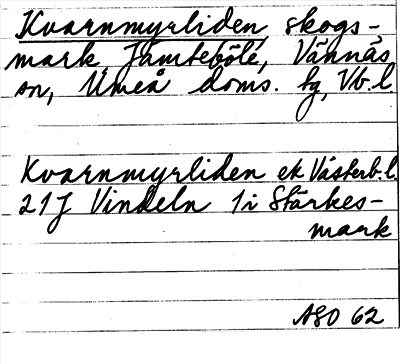 Kvarnmyrliden, skogs-
mark, Jämteböle, Vännäs
sn, Umeå doms. tg, Vb.l.
Kvarnmyrliden ek Västerb.l.
21J Vindeln 1i Stärkes-
mark
ASO 62